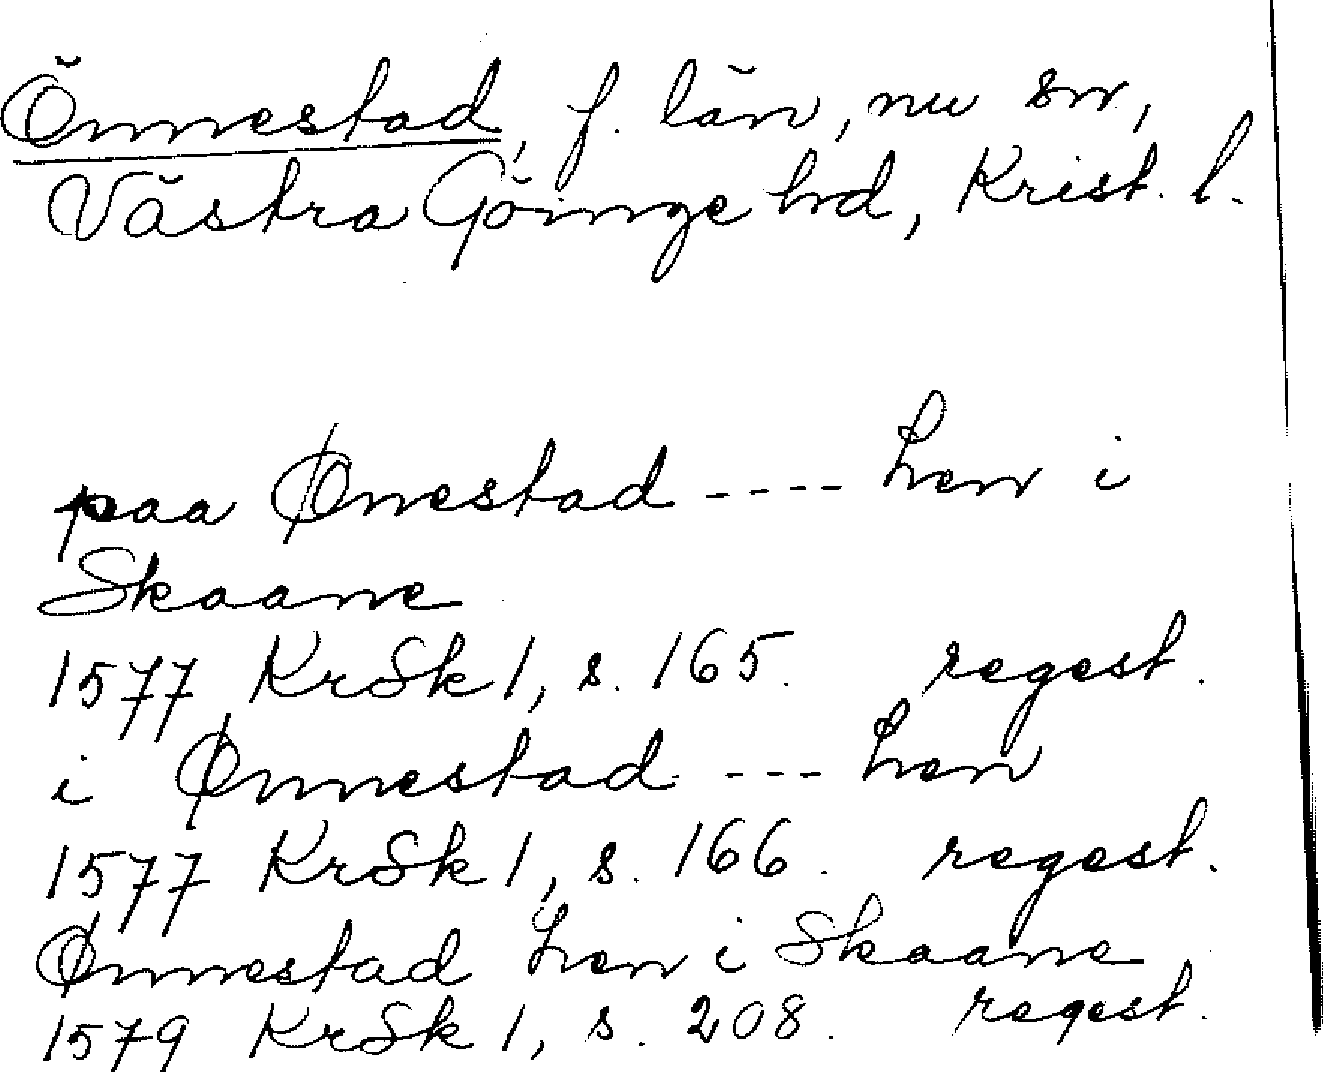 Önnestad, f. län, nu sn,
Västra Göinge hd, Krist. l.
paa Ønestad ---- Len i
Skaane
1577 KrSk 1, s. 165. regest.
i Ønnestad --- Len
1577 KrSk 1, s. 166. regest.
Ønnestad Len i Skaane
1579 KrSk 1, s. 208. regest.